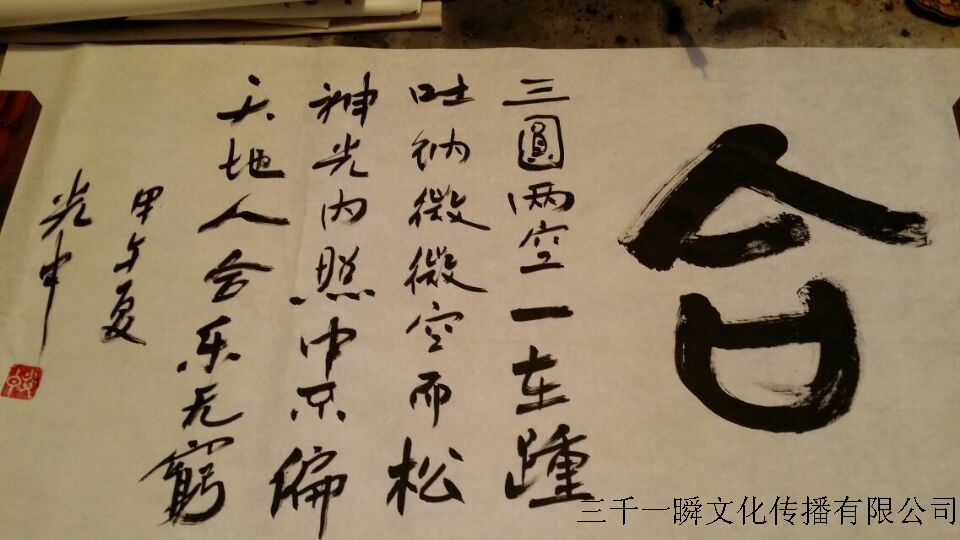 合
三圓两空一在踵
吐纳微微空而松
神光内照中不偏
天地人会乐无窮
甲午夏
光中
三千一瞬文化传播有限公司